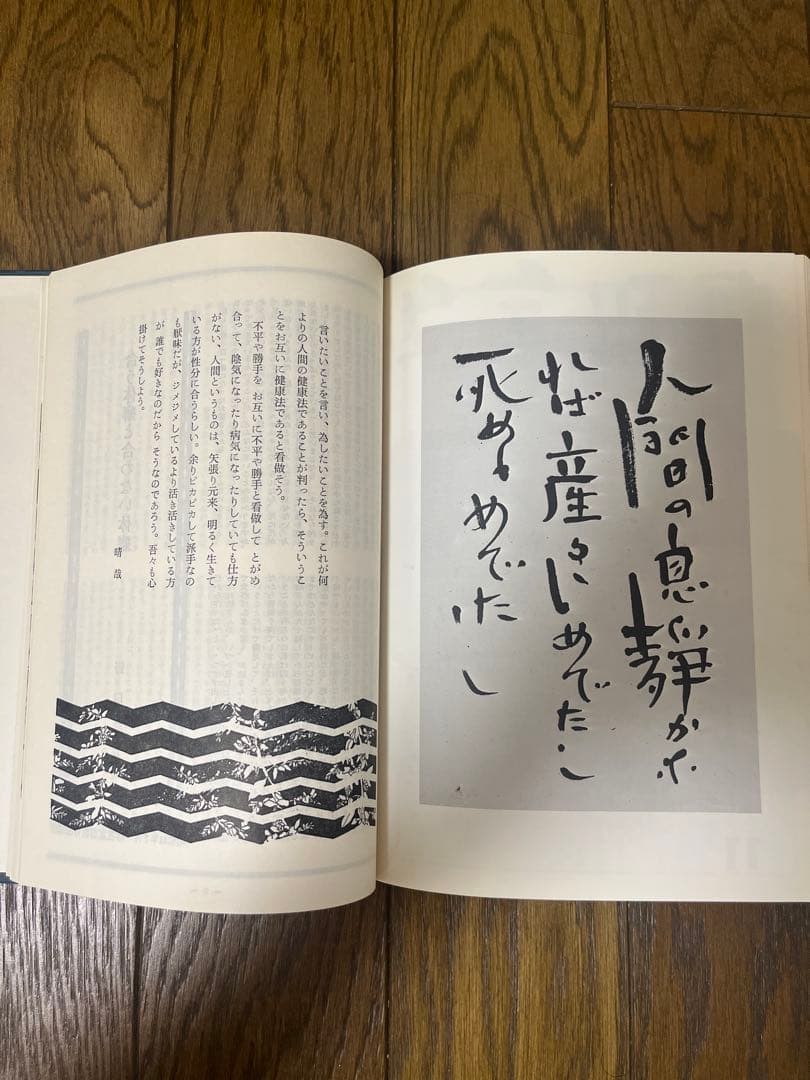 人間の息静かな
れば産るにめでたし
死ぬるめでたし
言いたいことを言い、為したいことを為す。これが何
よりの人間の健康法であることが判ったら、そういうこ
とをお互いに健康法であると看做そう。
不平や勝手を お互いに不平や勝手と看做して とがめ
合って、陰気になったり病気になったりしていても仕方
がない、人間というものは、矢張り元来、明るく生きて
いる方が性分に合うらしい。余りピカピカして派手なの
も厭味だが、ジメジメしているより活き活きしている方
が 誰でも好きなのだから そうなのであろう。吾々も心
掛けてそうしよう。
晴 哉